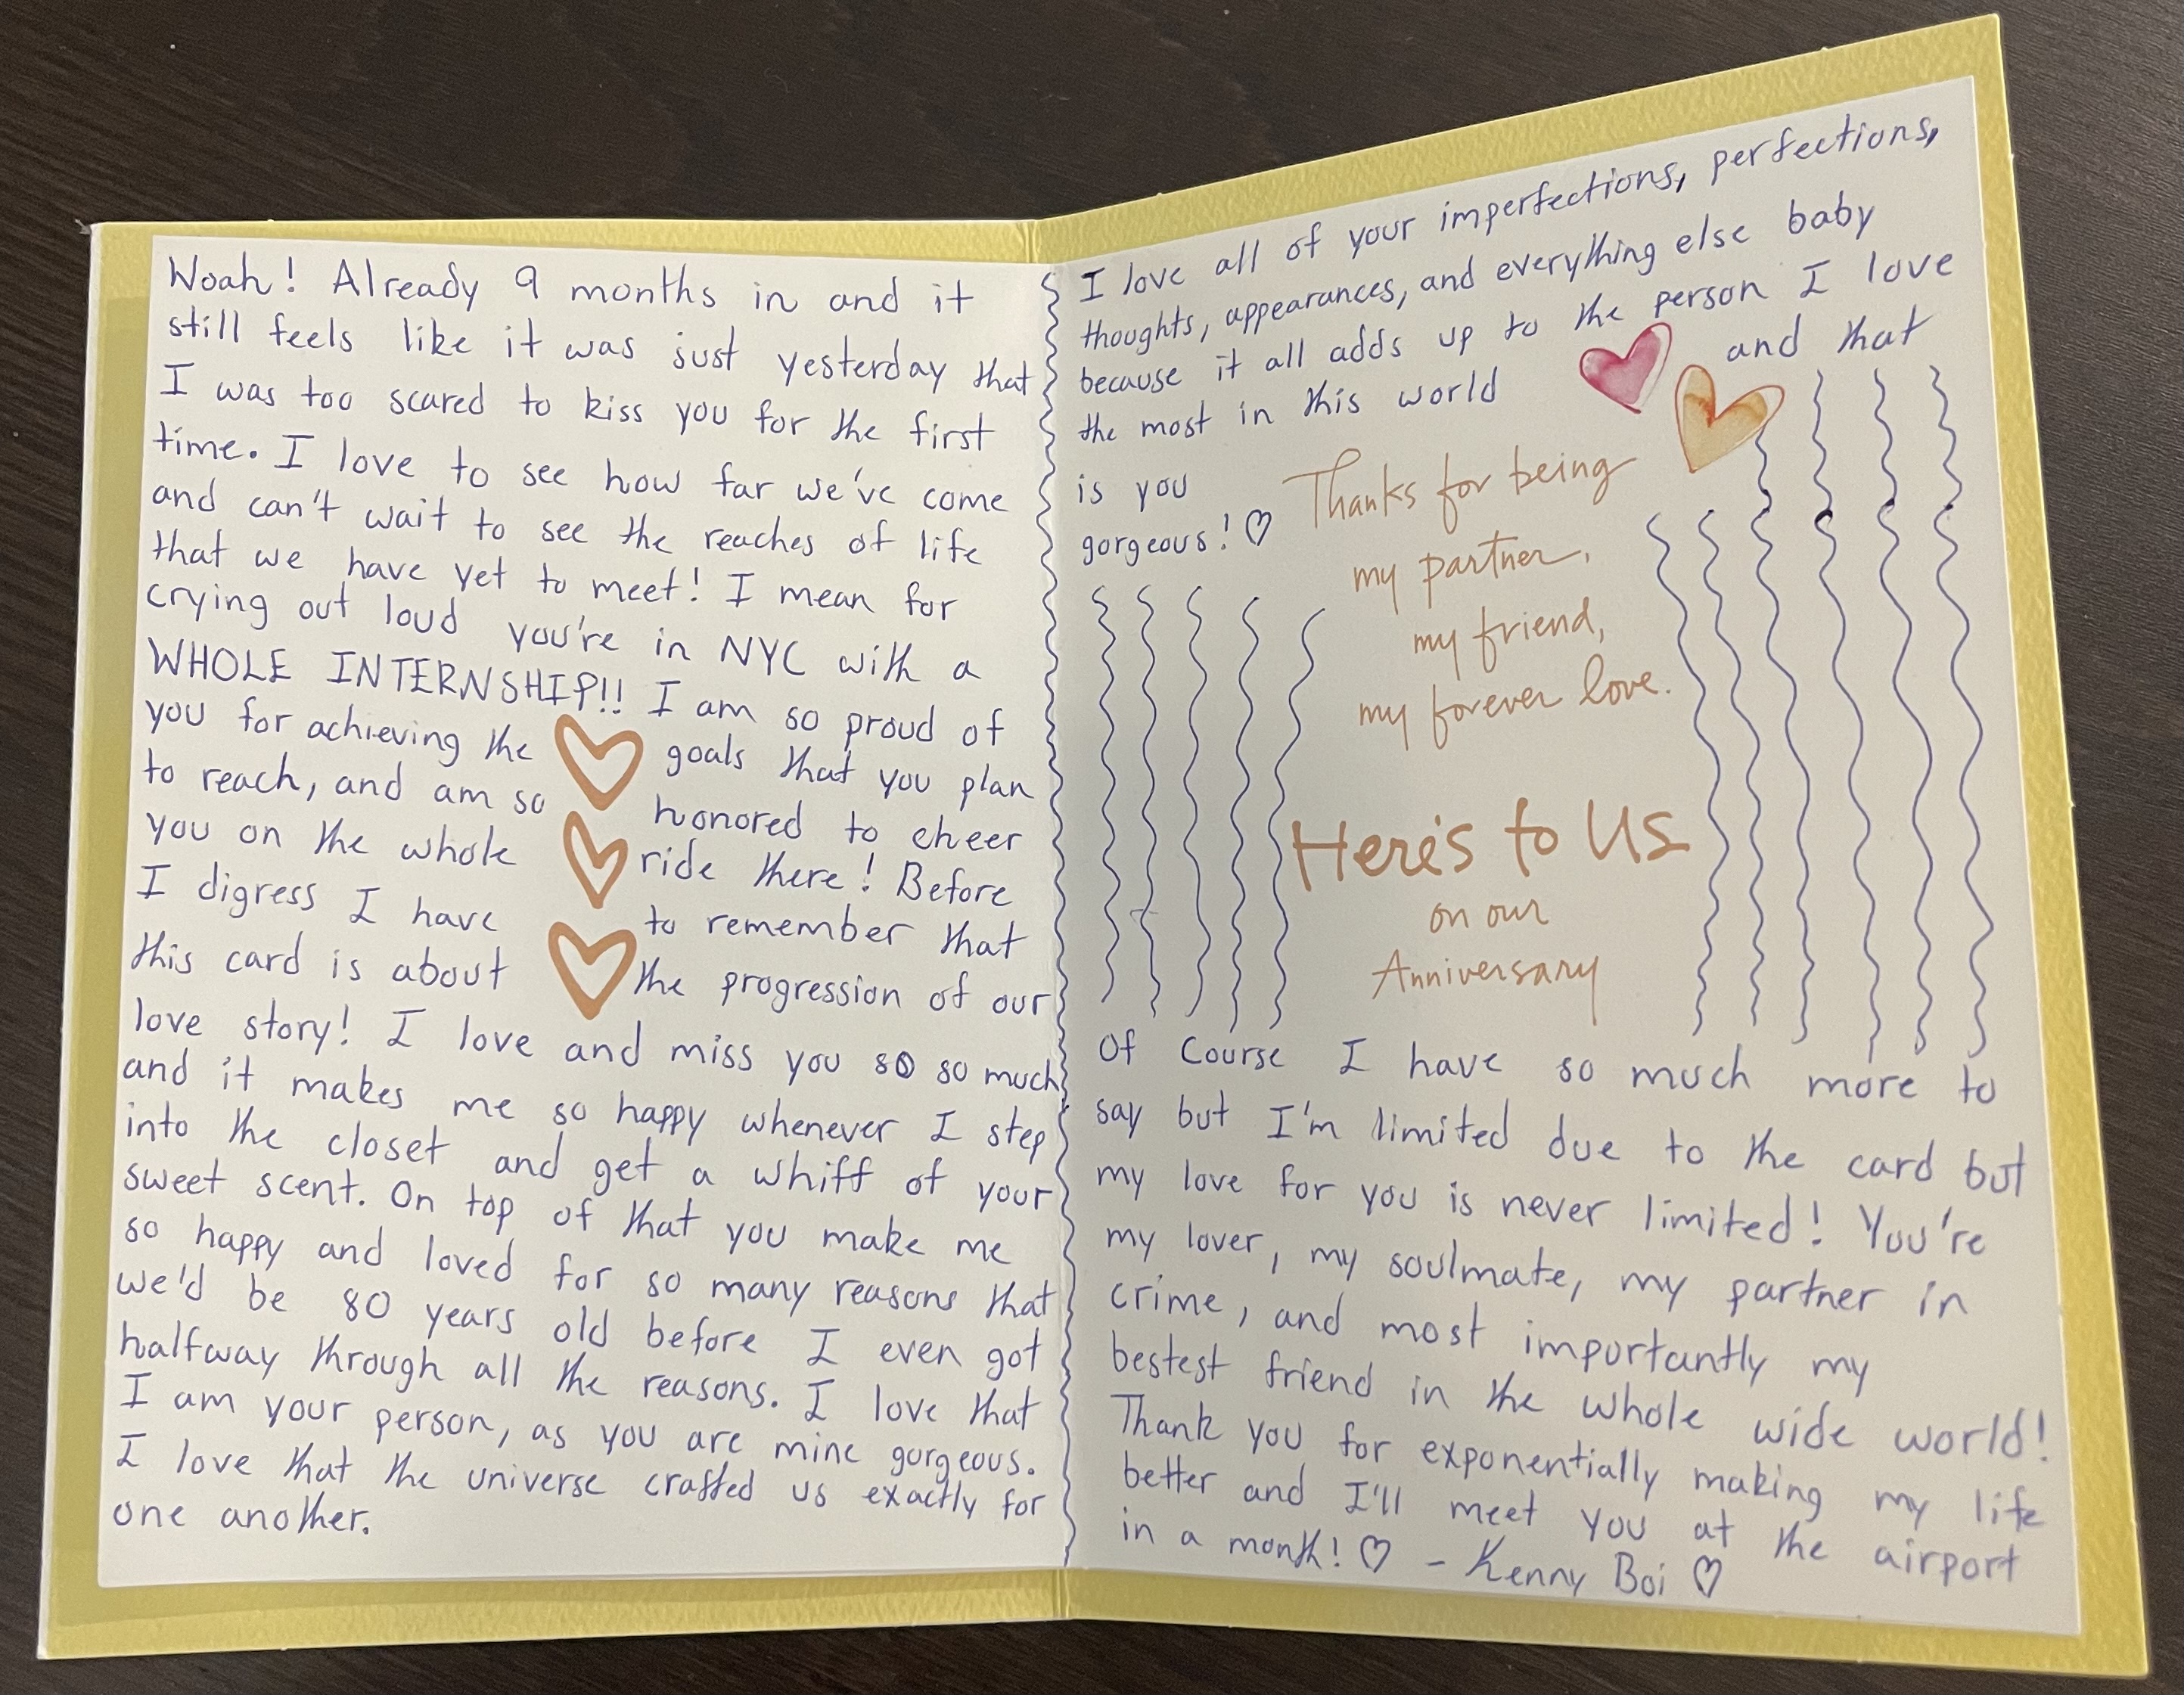 Woah! Already 9 months in and it
still feels like it was just yesterday that
I was too scared to kiss you for the first
time. I love to see how far we've come
and can't wait to see the reaches of life
that we have yet to meet! I mean for
crying out loud you're in NYC with a
WHOLE INTERNSHIP!! I am so proud of
you for achieving the goals that you plan
to reach, and am so honored to cheer
you on the whole ride there! Before
I digress I have to remember that
this card is about the progression of our
love story! I love and miss you so so much
and it makes me so happy whenever I step
into the closet and get a whiff of your
sweet scent. On top of that you make me
so happy and loved for so many reasons that
we'd be 80 years old before I even got
halfway through all the reasons. I love that
I am your person, as you are mine gorgeous.
I love that the universe crafted us exactly for
one another.
I love all of your imperfections, perfections,
thoughts, appearances, and everything else baby
because it all adds up to the person I love
the most in this world and that
is you
gorgeous! ♡
Thanks for being
my partner,
my friend,
my forever love.
Here's to Us
on our
Anniversary
Of course I have so much more to
say but I'm limited due to the card but
my love for you is never limited! You're
my lover, my soulmate, my partner in
crime, and most importantly my
bestest friend in the whole wide world!
Thank you for exponentially making my life
better and I'll meet you at the airport
in a month! ♡ - Kenny Boi ♡